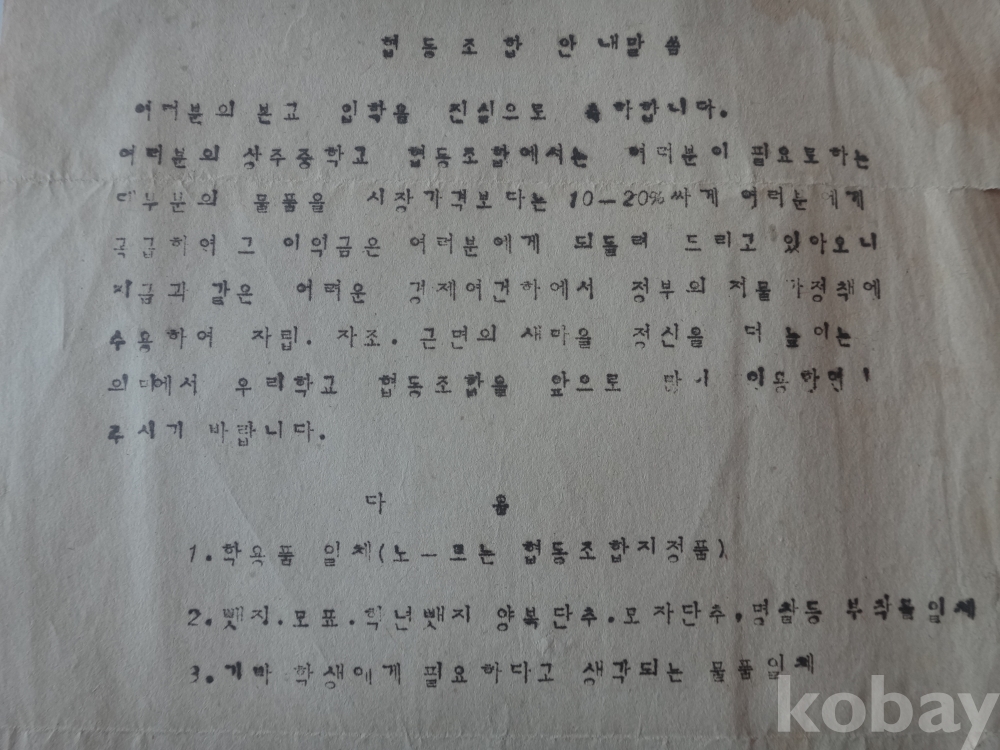 협동조합 안내말씀
여러분의 본고 입학을 진심으로 축하합니다.
여러분의 상주중학고 협동조합에서는 여러분이 필요로하는
대부분의 물품을 시장가격보다는 10-20%싸게 여러분에게
공급하여 그 이익금은 여러분에게 되돌려 드리고 있아오니
지금과 같은 어려운 경제여건하에서 정부의 저물가정책에
수응하여 자립. 자조. 근면의 새마을 정신을 더 높이는
의미에서 우리학고 협동조합을 앞으로 많이 이용하여
주시기 바랍니다.
다 음
1.학용품 일체(노-트는 협동조합지정품)
2.뺏지.모표.학년뺏지 양복단추.모자단추.명찰등 부착물일체
3.기타 학생에게 필요하다고 생각되는 물품일체
kobay